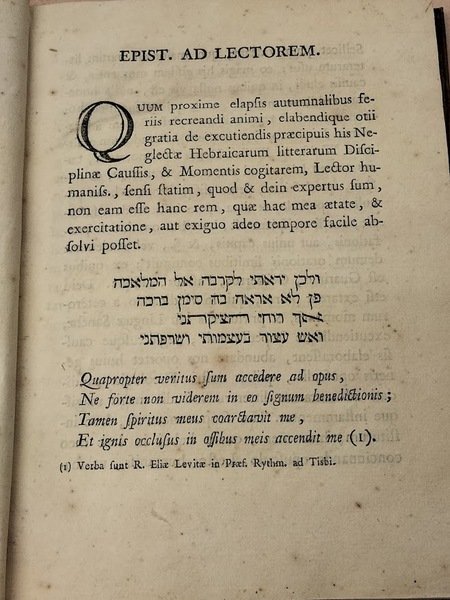 EPIST. AD LECTOREM.
QUUM proxime elapsis autumnalibus fe-
riis recreandi animi, elabendique otii
gratia de excutiendis præcipuis his Ne-
glectæ Hebraicarum litterarum Disci-
plinæ Caussis, & Momentis cogitarem, Lector hu-
maniss., sensi statim, quod & dein expertus sum,
non eam esse hanc rem, quæ hac mea ætate, &
exercitatione, aut exiguo adeo tempore facile ab-
solvi posset.
ולכן יראתי לקרבה אל המלאכה
פן לא אראה בה סימן ברכה
אך רוחי הציקתני
ואש עצור בעצמותי ושרפתני
Quapropter veritus sum accedere ad opus,
Ne forte non viderem in eo signum benedictionis;
Tamen spiritus meus coarctavit me,
Et ignis occlusus in ossibus meis accendit me (1).
(1) Verba sunt R. Eliæ Levitæ in Præf. Rythm. ad Tisbi.